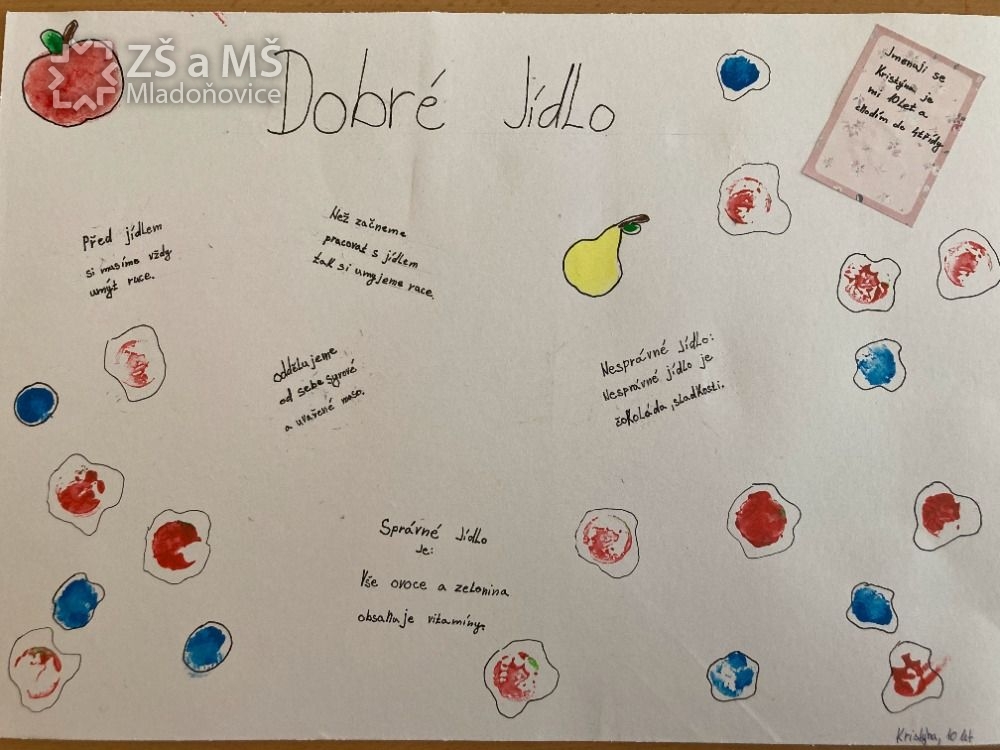 ZŠ a MŠ
Mladoňovice
Dobré Jídlo
Jmenuji se
Kristýna je
mi 10 let a
chodím do 4třídy.
Před jídlem
si musíme vždy
umýt ruce.
Než začneme
pracovat s jídlem
tak si umyjeme ruce.
Oddělujeme
od sebe syrové
a uvařené maso.
Nesprávné Jídlo:
Nesprávné jídlo je
čokoláda, sladkosti.
Správné Jídlo
Je:
Vše ovoce a zelenina
obsahuje vitamíny.
Kristýna, 10 let